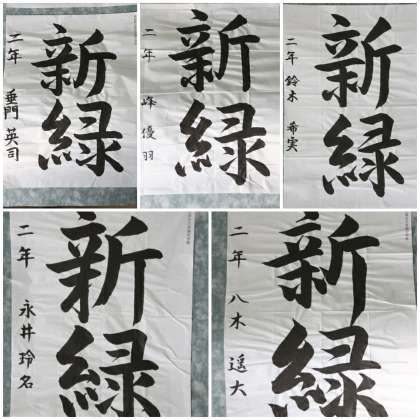 新緑
二年 垂門 英司
新緑
二年 峰 優羽
新緑
二年 鈴木 希実
新緑
二年 永井玲名
新緑
二年 八木 遥大